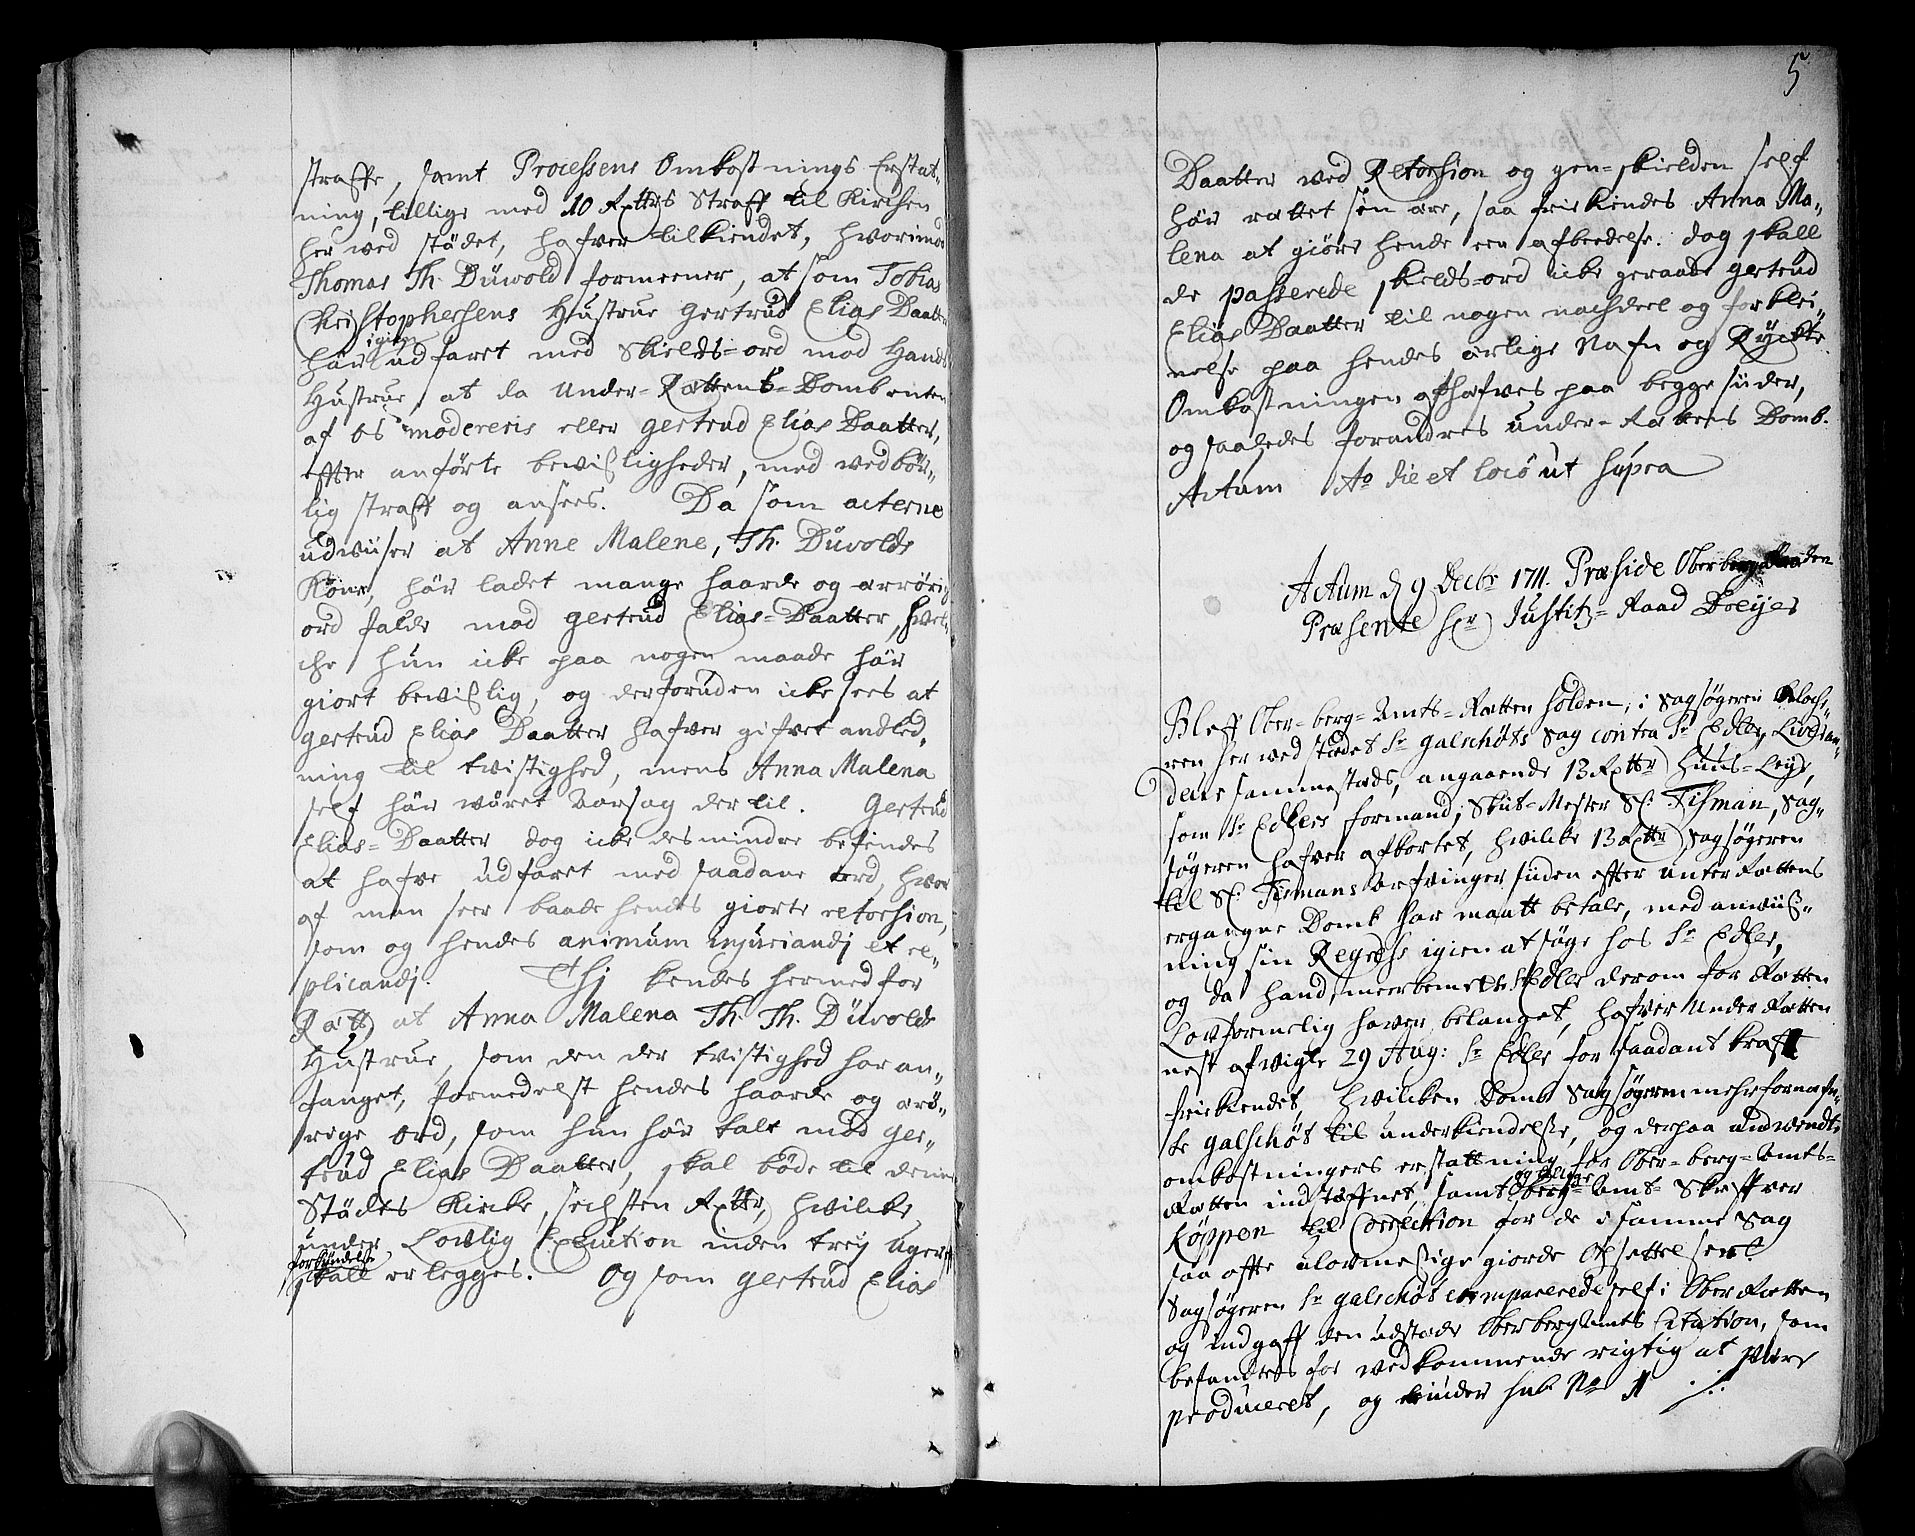 straffe, samt Processens Omkostnings Erstat„
ning, tillige med 10 Rxttrs Straff til Kirchen
her wed städet, hafver tilkiendet, hvorimod
Thomas Th. Düwold formeener, at som Tobias
Christophersens Hustrue Gertrud Elias Daatter
här igien udfaret med Skields-ord mod Hands
Hustrue, at da Under-Rettens-Domb enten
af os modereris eller Gertrud Elias Daatter,
effter anførte bewißligheder, med wedbör„
lig straff og ansees. Da som acterne
udwiiser at Anne Malene, Th. Düvolds
Köne, här ladet mange haarde og ærrörig
ord falde mod Gertrud Elias-Daatter, hvil„
che hun icke paa nogen maade här
giort bewißlig, og derforuden icke sees at
Gertrud Elias Daatter hafver gifvet anled„
ning til twistighed, mens Anna Malena
self här wäret Aarsag der til. Gertrud
Elias-Daatter dog icke desmindre befindes
at hafve udfaret med saadane ord, hvor
af man seer baade hendes giorte retorsion,
som og hendes animum injuriandj et re„
plicandj. Thj kendes hermed for
Rætt at Anna Malena Th. Th. Düvolds
Hustrue, som den der twistighed har an„
fanget, formedelst hendes haarde og ærö„
rige ord, som hun här talt mod Ger„
trud Elias Daatter, skal böde til denne
Städes Kircke, sechsten Rxttr, hvilcke
under Lovlig Execution inden trej uger efter
forkyndelse skall erlegges. Og som Gertrud Elias
5
Daatter wed Retorsion og gen-skielden self
här rættet sin ære, saa friekiendes Anna Ma„
lena at giöre hende een afbeedelse. dog skall
de passerede skields-ord icke geraade Gertrud
Elias Daatter til nogen nachdeel og forklei„
nelse paa hendes ærlige Nafn og Rÿckte
Omkostningen ophæfves paa begge siider,
og saaledes forandres under-Rættens Domb.
Actum Ao die et loco ut supra
Actum d 9 Decbr 1711. Præside Oberberg Raaden
Præsente Hr Justitz-Raad Doeyes
Bleff Ober-berg-Ambts-Rætten holden, i Sagsøgeren Kloche„
ren her wed stædet Sr Galschøts Sag contra Sr Edler, Liveran„
deur sammestæds, angaaende 13 Rxttr Huus-Leye,
som Sr Edlers formand, Skiit-Mester Sl. Tisman, Sag„
søgeren hafver afkortet, hvilcke 13 Rxttr Sagsøgeren
til Sl. Tismans Arfvinger siiden effter Under Rættens
ergangne Domb har maatt betale, med anwiiß„
ning sin Regress igien at søge hos Sr Edler,
og da hand meerbemelte Sr Edler derom for Rætten
Lovformelig haver belanget, hafver Under Rætten
nest afvigte 29 Aug: Sr Edler for saadant kraff
friekiendet, Hvilcken Domb Sagsøgeren mehrfornæfn„
te Galschøt til underkiendelse, og derpaa anwendte
omkostningers erstattning for Ober-berg-Ambts-
Rætten indstæffnet, samt og Berg-Amt-Skriffver
Köppen til Correction for de i samme Sag
saa ofte ulovmeßige giorde Opsettelser.
Sagsøgeren Sr Galschøt comparerede self i Ober Rætten
og indgaff den udstæde OberbergAmts Citation, som
befandtes for wedkommende rigtig at være
produceret, og under sub No 1